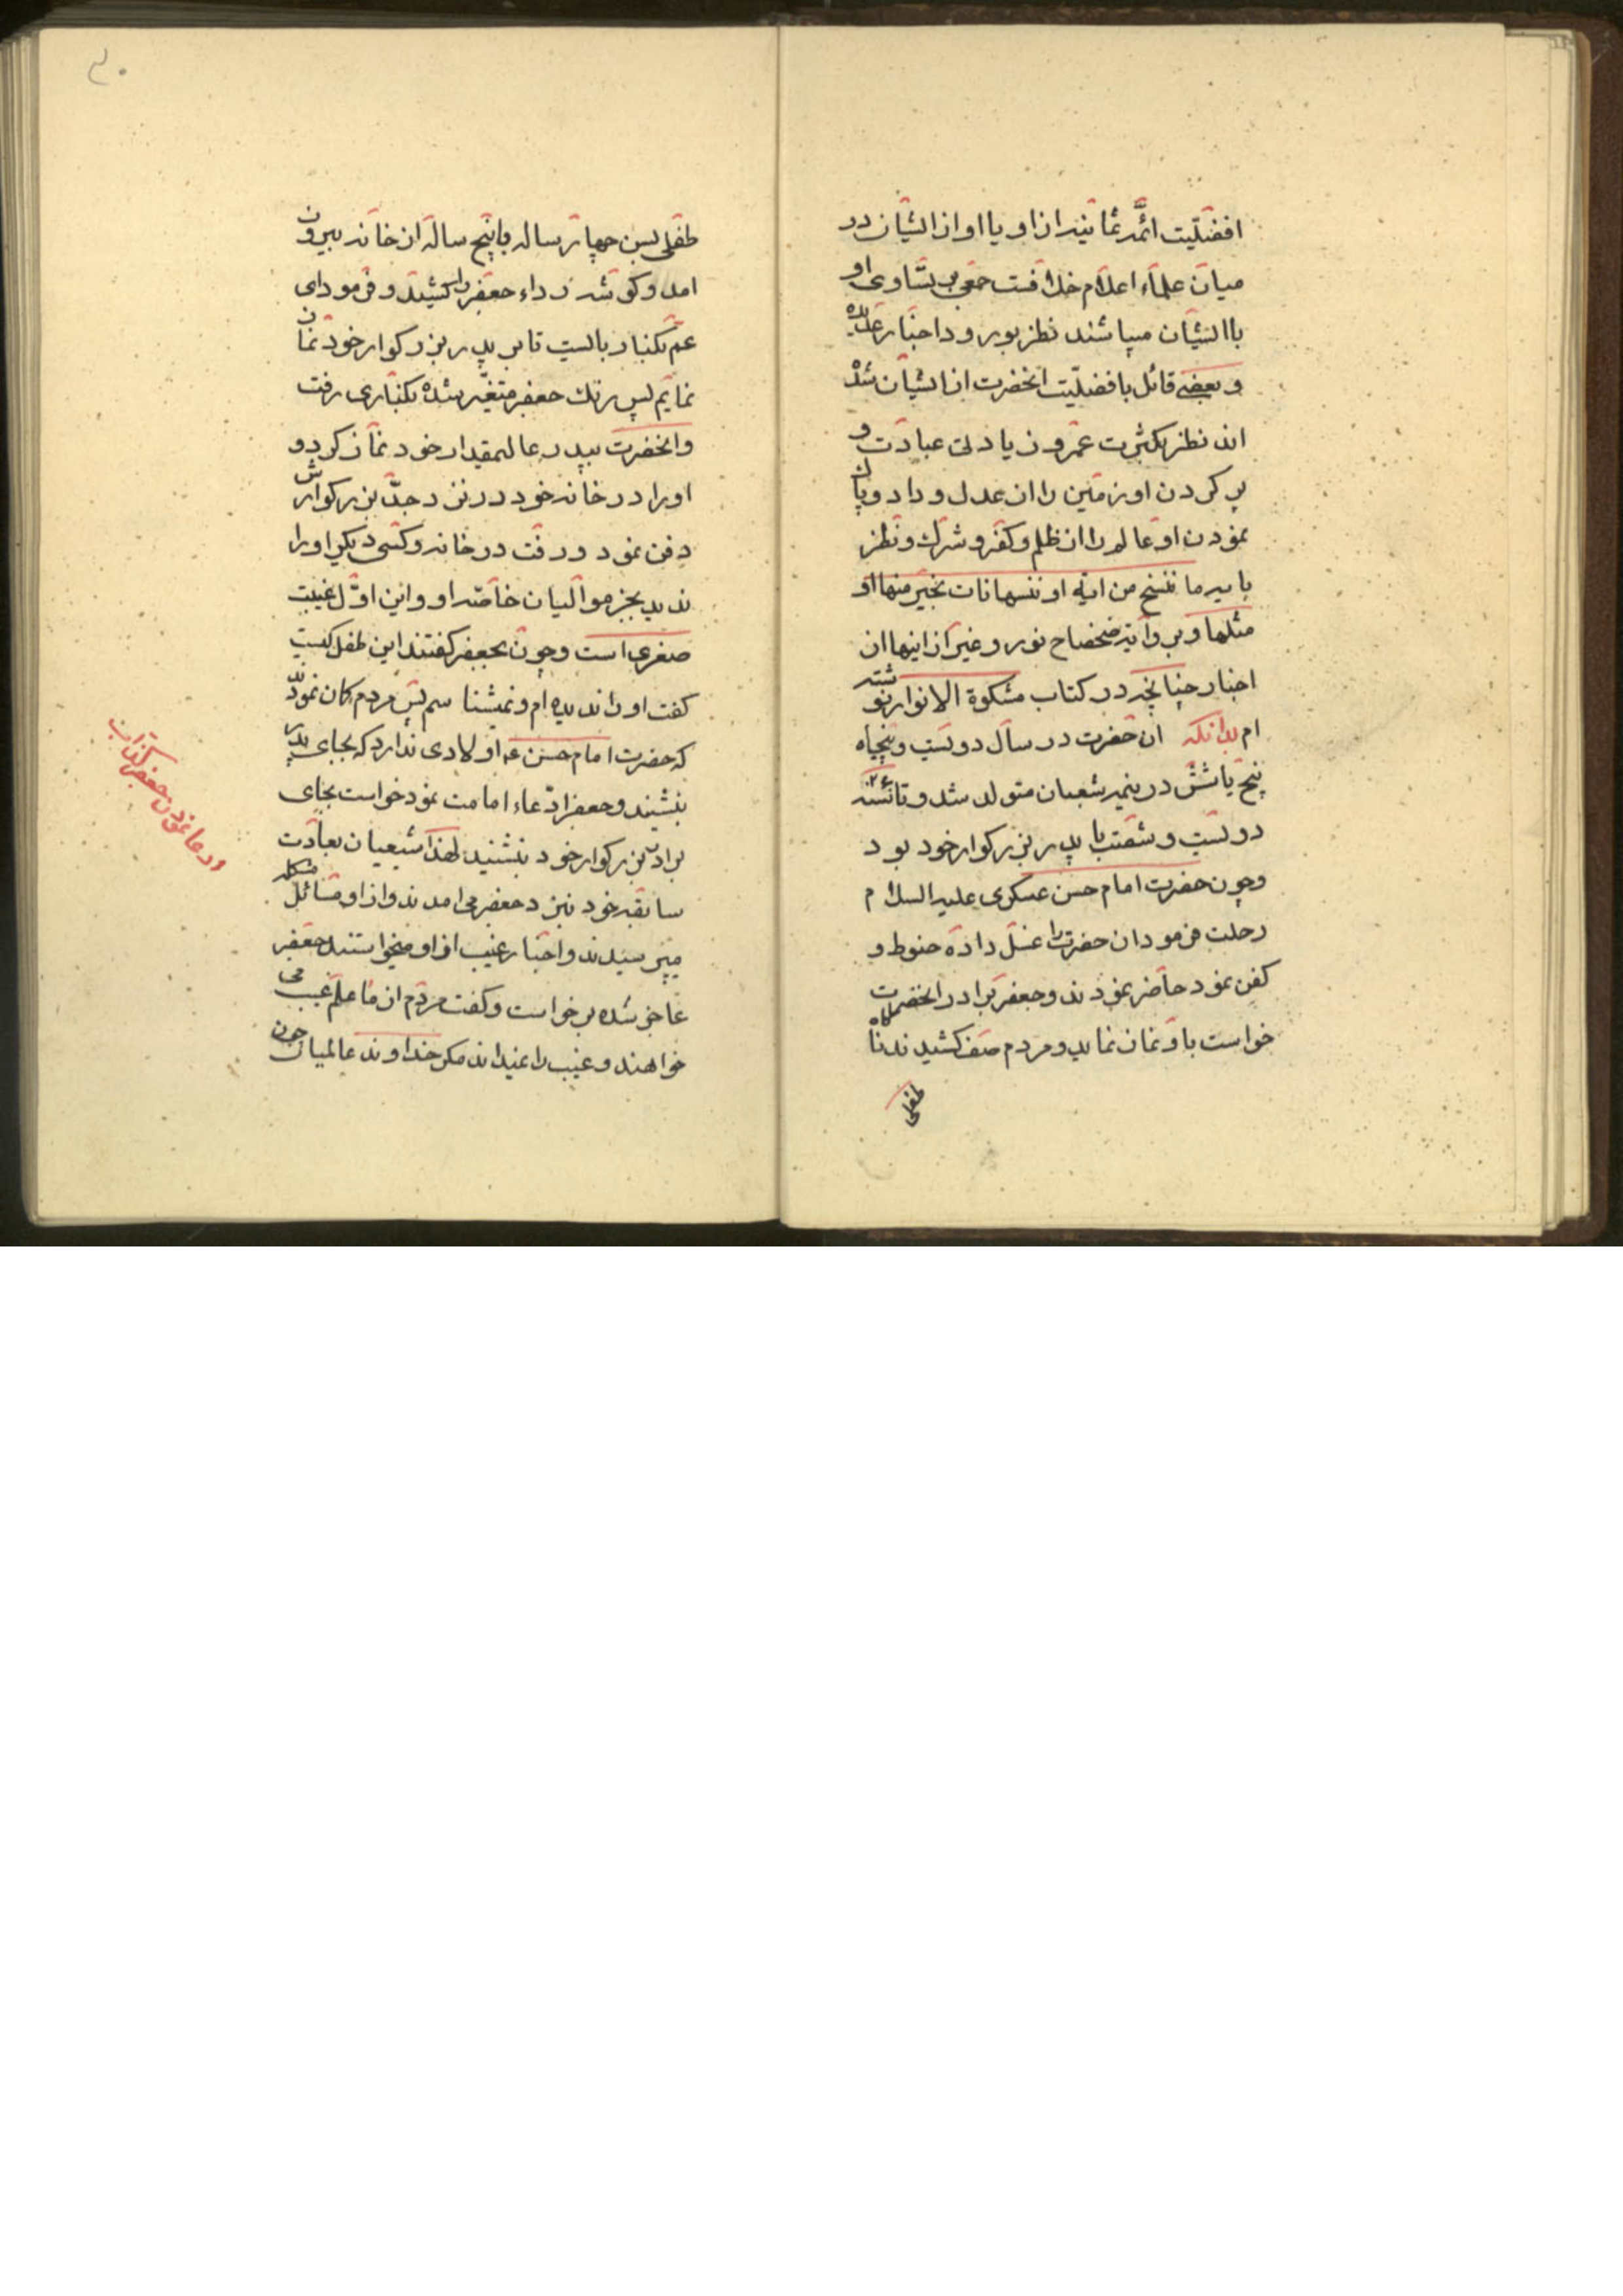 افضلیت ائمه ثمانیه از او یا او از ایشان در
میان علماء اعلام خلافست جمعی بر تساوی او
با ایشان میباشند نظر بورود اخبار عدیده
و بعضی قائل بافضلیت انحضرت از ایشان شده
اند نظر بکثرت عمر و زیادتی عبادت و
پر کردن او زمین را از عدل و داد و پاک
نمودن او عالم را از ظلم و کفر و شرک و نظر
بایه ما ننسخ من ایة او ننسها نات بخیر منها او
مثلها و بروایة ضحضاح نور و غیر از اینها از
اخبار چنانچه در کتاب مشکوة الانوار نوشته
ام بدانکه ان حضرت در سال دویست و پنجاه
پنج یا شش در نیمه شعبان متولد شد و تا سنه ۲۶۰
دویست و شصت با پدر بزرکوار خود بود
و چون حضرت امام حسن عسکری علیه السلام
رحلت فرمود ان حضرت را غسل داده حنوط و
کفن نمود حاضر نمودند و جعفر برادر انحضرت
خواست باو نماز نماید و مردم صف کشیدند ناکاه
طفلی
۳۰
طفلی بسن چهار ساله یا پنج ساله از خانه بیرون
امد و کوشه رداء جعفر را کشید و فرمود ای
عم بکنار بایست تا بر پدر بزرکوار خود نماز
نمایم پس رنک جعفر متغیر شده بکناری رفت
و انحضرت بپدر عالیمقدار خود نماز کرد و
او را در خانه خود در نزد جد بزرکوارش
دفن نمود و رفت در خانه و کسی دیکر او را
ندید بجز موالیان خاصه او و این اول غیبت
صغری است و چون بجعفر کفتند این طفل کیست
کفت او را ندیده ام و نمیشناسم پس مردم کمان نمودند
که حضرت امام حسن ع اولادی ندارد که بجای پدر
بنشیند و جعفر ادعاء امامت نمود خواست بجای
برادر بزرکوار خود بنشیند لهذا شیعیان بعادت
سابقه خود نزد جعفر می امدند و از او مسائل مشکله
میپرسیدند و اخبار غیب از او میخواستند جعفر
عاجز شده برخواست و کفت مردم از ما علم غیب می
خواهند و غیب را نمیداند مکر خداوند عالمیان چون
ادعا نمودن جعفر کذاب